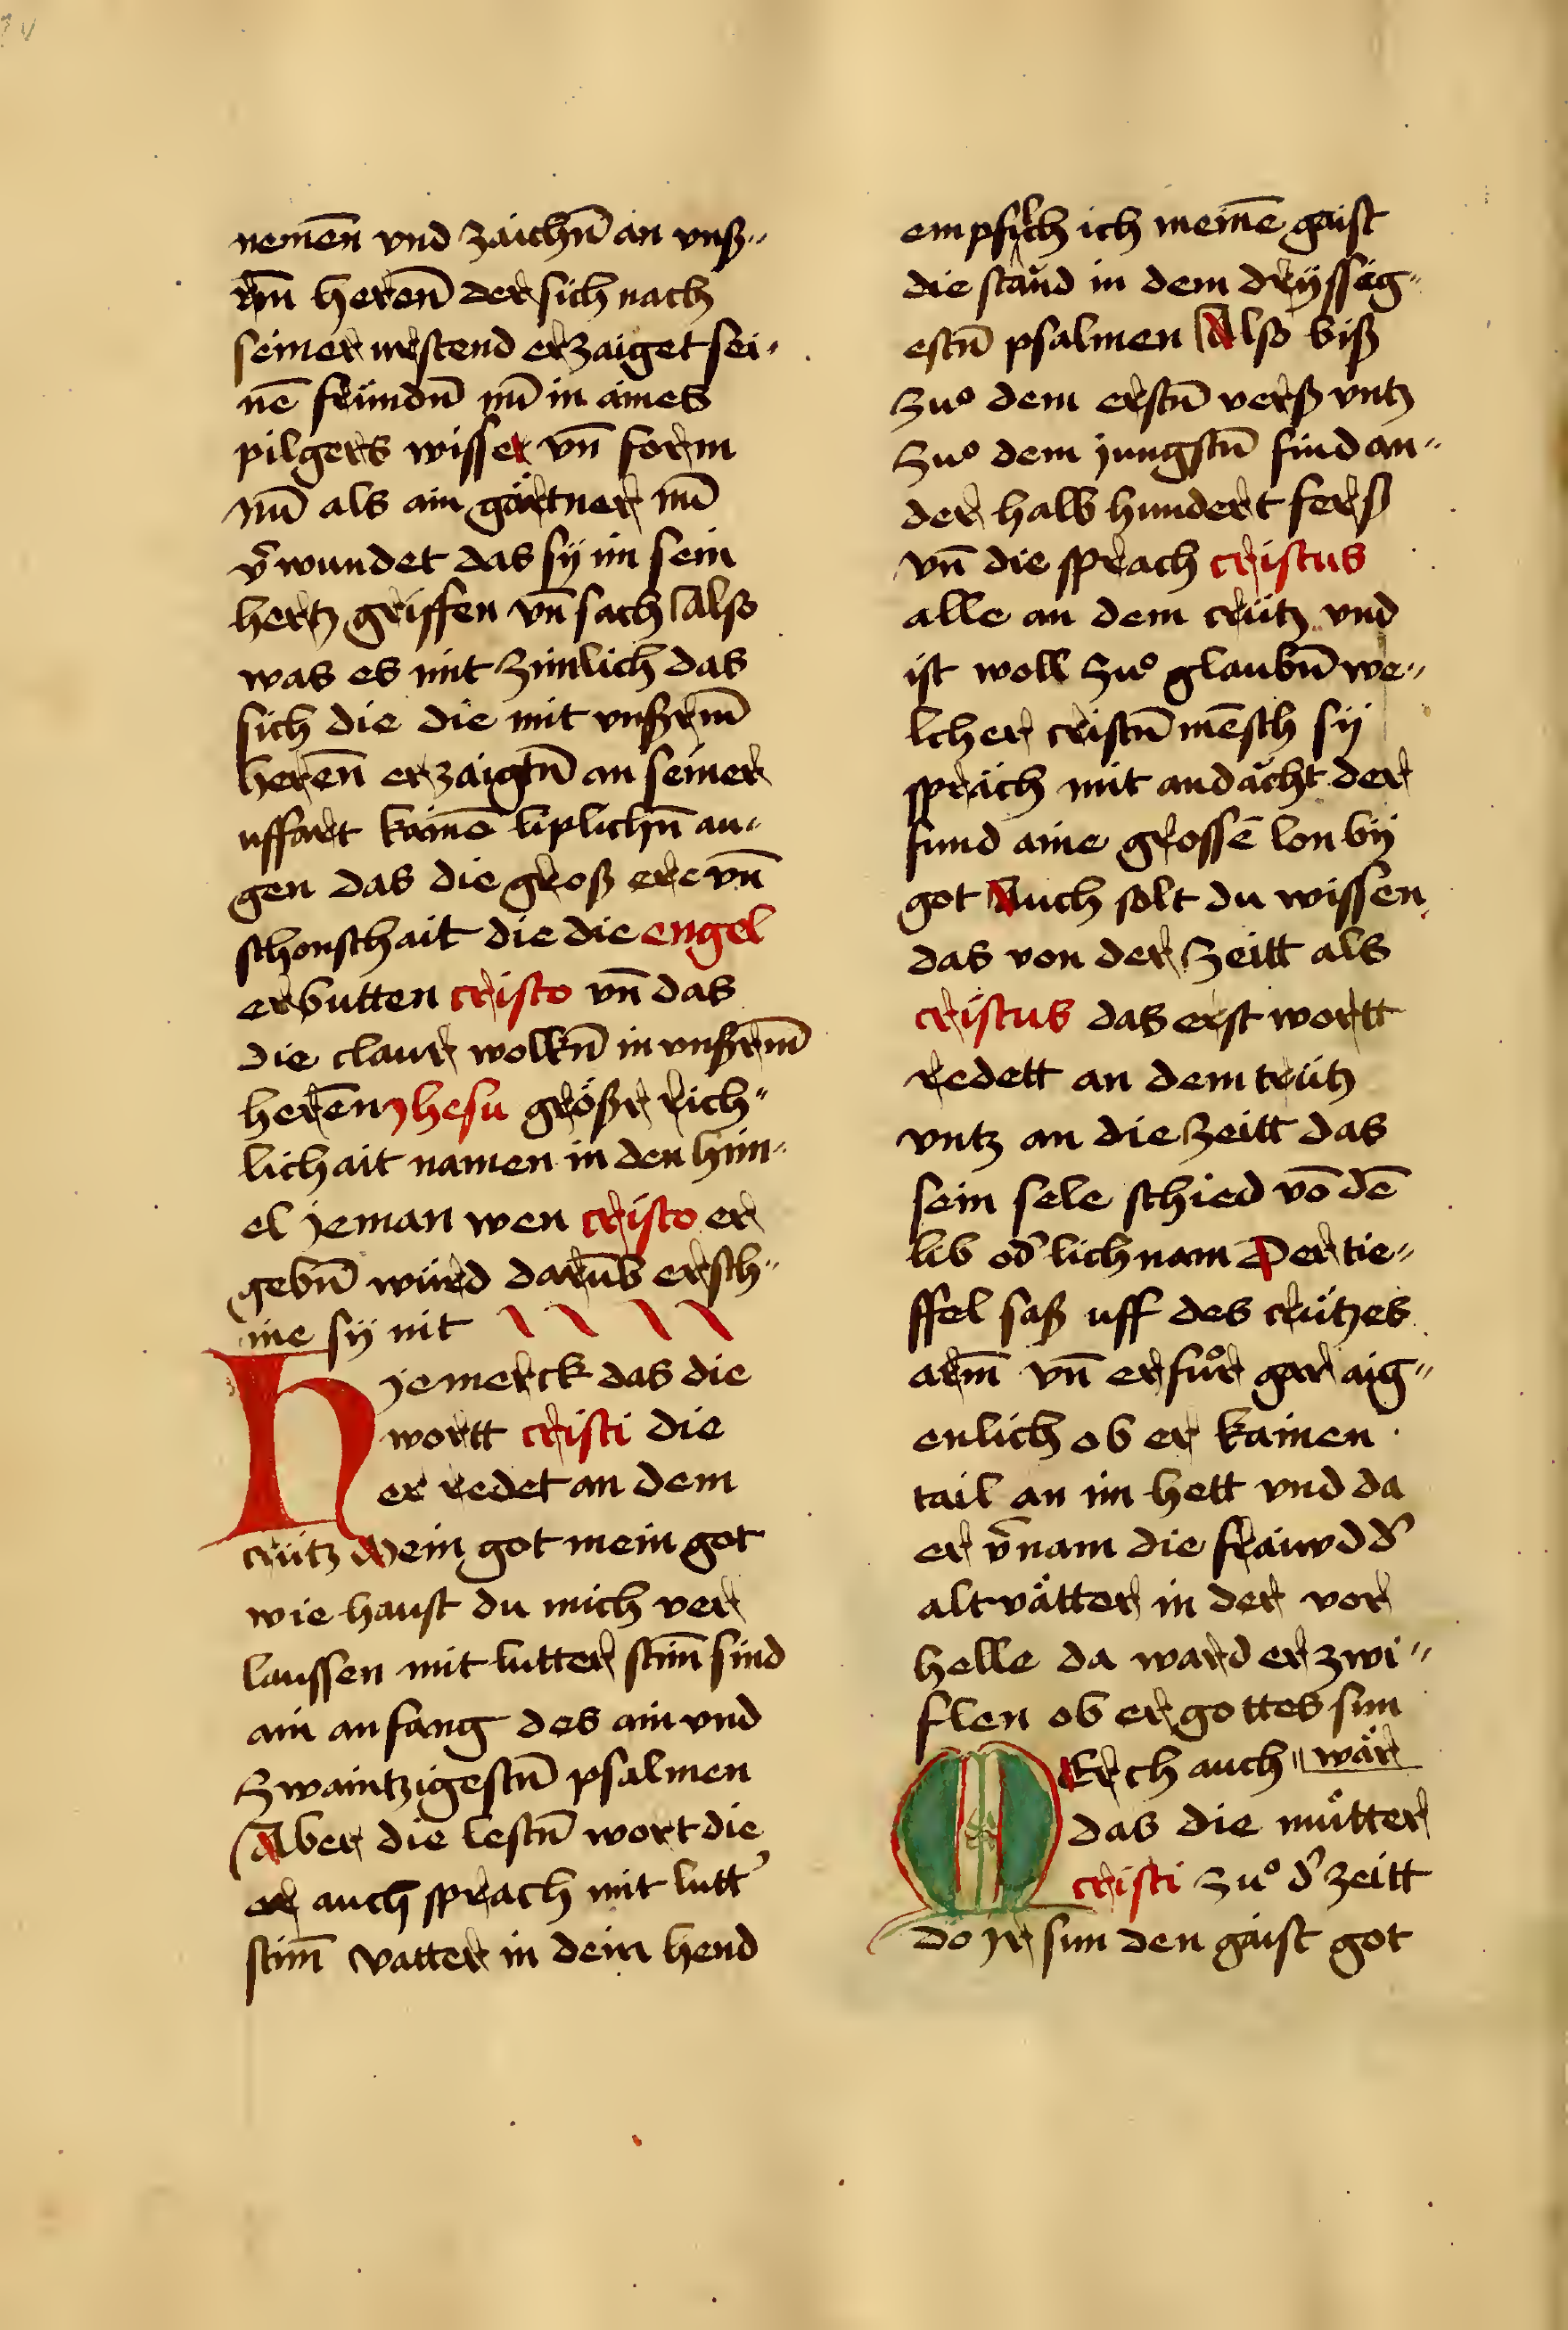 nemen̄ vnd zaichn̄ an vnß„
rm̄ heren̄ der sich nach
seiner urstend erzaiget sei„
nē fründn̄ nū in aines
pilgers wisse vn̄ form
Nū als ain gärtner nū
v̄wundet das sÿ im sein
hertz griffen vn̄ sach Also
was es nit zimlich das
sich die die mit vnßerm̄
heren̄ erzaigtn̄ an seiner
uffart kainē liplichn̄ au„
gen das die groß ere vn̄
schonschait die die engel
erbutten cristo vn̄ das
die claur wolkn̄ in vnßerm̄
herēn jhesu größer rich„
lichait namen in den him„
el jeman wen cristo er
gebn̄ würd darūb ersch„
ine sÿ nit
Hje merck das die
wortt cristi die
er redet an dem
crütz Mein got mein got
wie haust du mich ver
laussen mit lutter stim̄ sind
ain anfang des ain vnd
Zwaintzigestn̄ psalmen
Aber die lestn̄ wort die
er auch sprach mit lutt'
stim̄ vatter in dein hend
empfilch ich meinē gaist
die staͧnd in dem drÿsseg„
estn̄ psalmen Also biß
Zuͦ dem erstn̄ verß vntz
Zuͦ dem jungstn̄ find an„
der halb hundert ferß
vn̄ die sprach cristus
alle an dem crütz vnd
ist woll Zuͦ glaubn̄ we„
lcher cristn̄ mēsch sÿ
spräch mit andächt der
fund aine grossē lon bÿ
got Auch solt du wissen
das von der Zeitt als
cristus das erst wortt
redett an dem crütz
vntz an die Zeitt das
sein sele schied vō dē
lib od' lichnam Der tie„
ffel saß uff des crützes
arm̄ vn̄ erfuͦr gar aig„
enlich ob er kainen
tail an im hett vnd da
er v̄nam die fraiwd d'
altvätter in der vor
helle da ward er zwi„
flen ob er gottes sun
MErch auch „ wär
das die muͤtter
cristi Zuͦ d' zeitt
do jr sun den gaist got